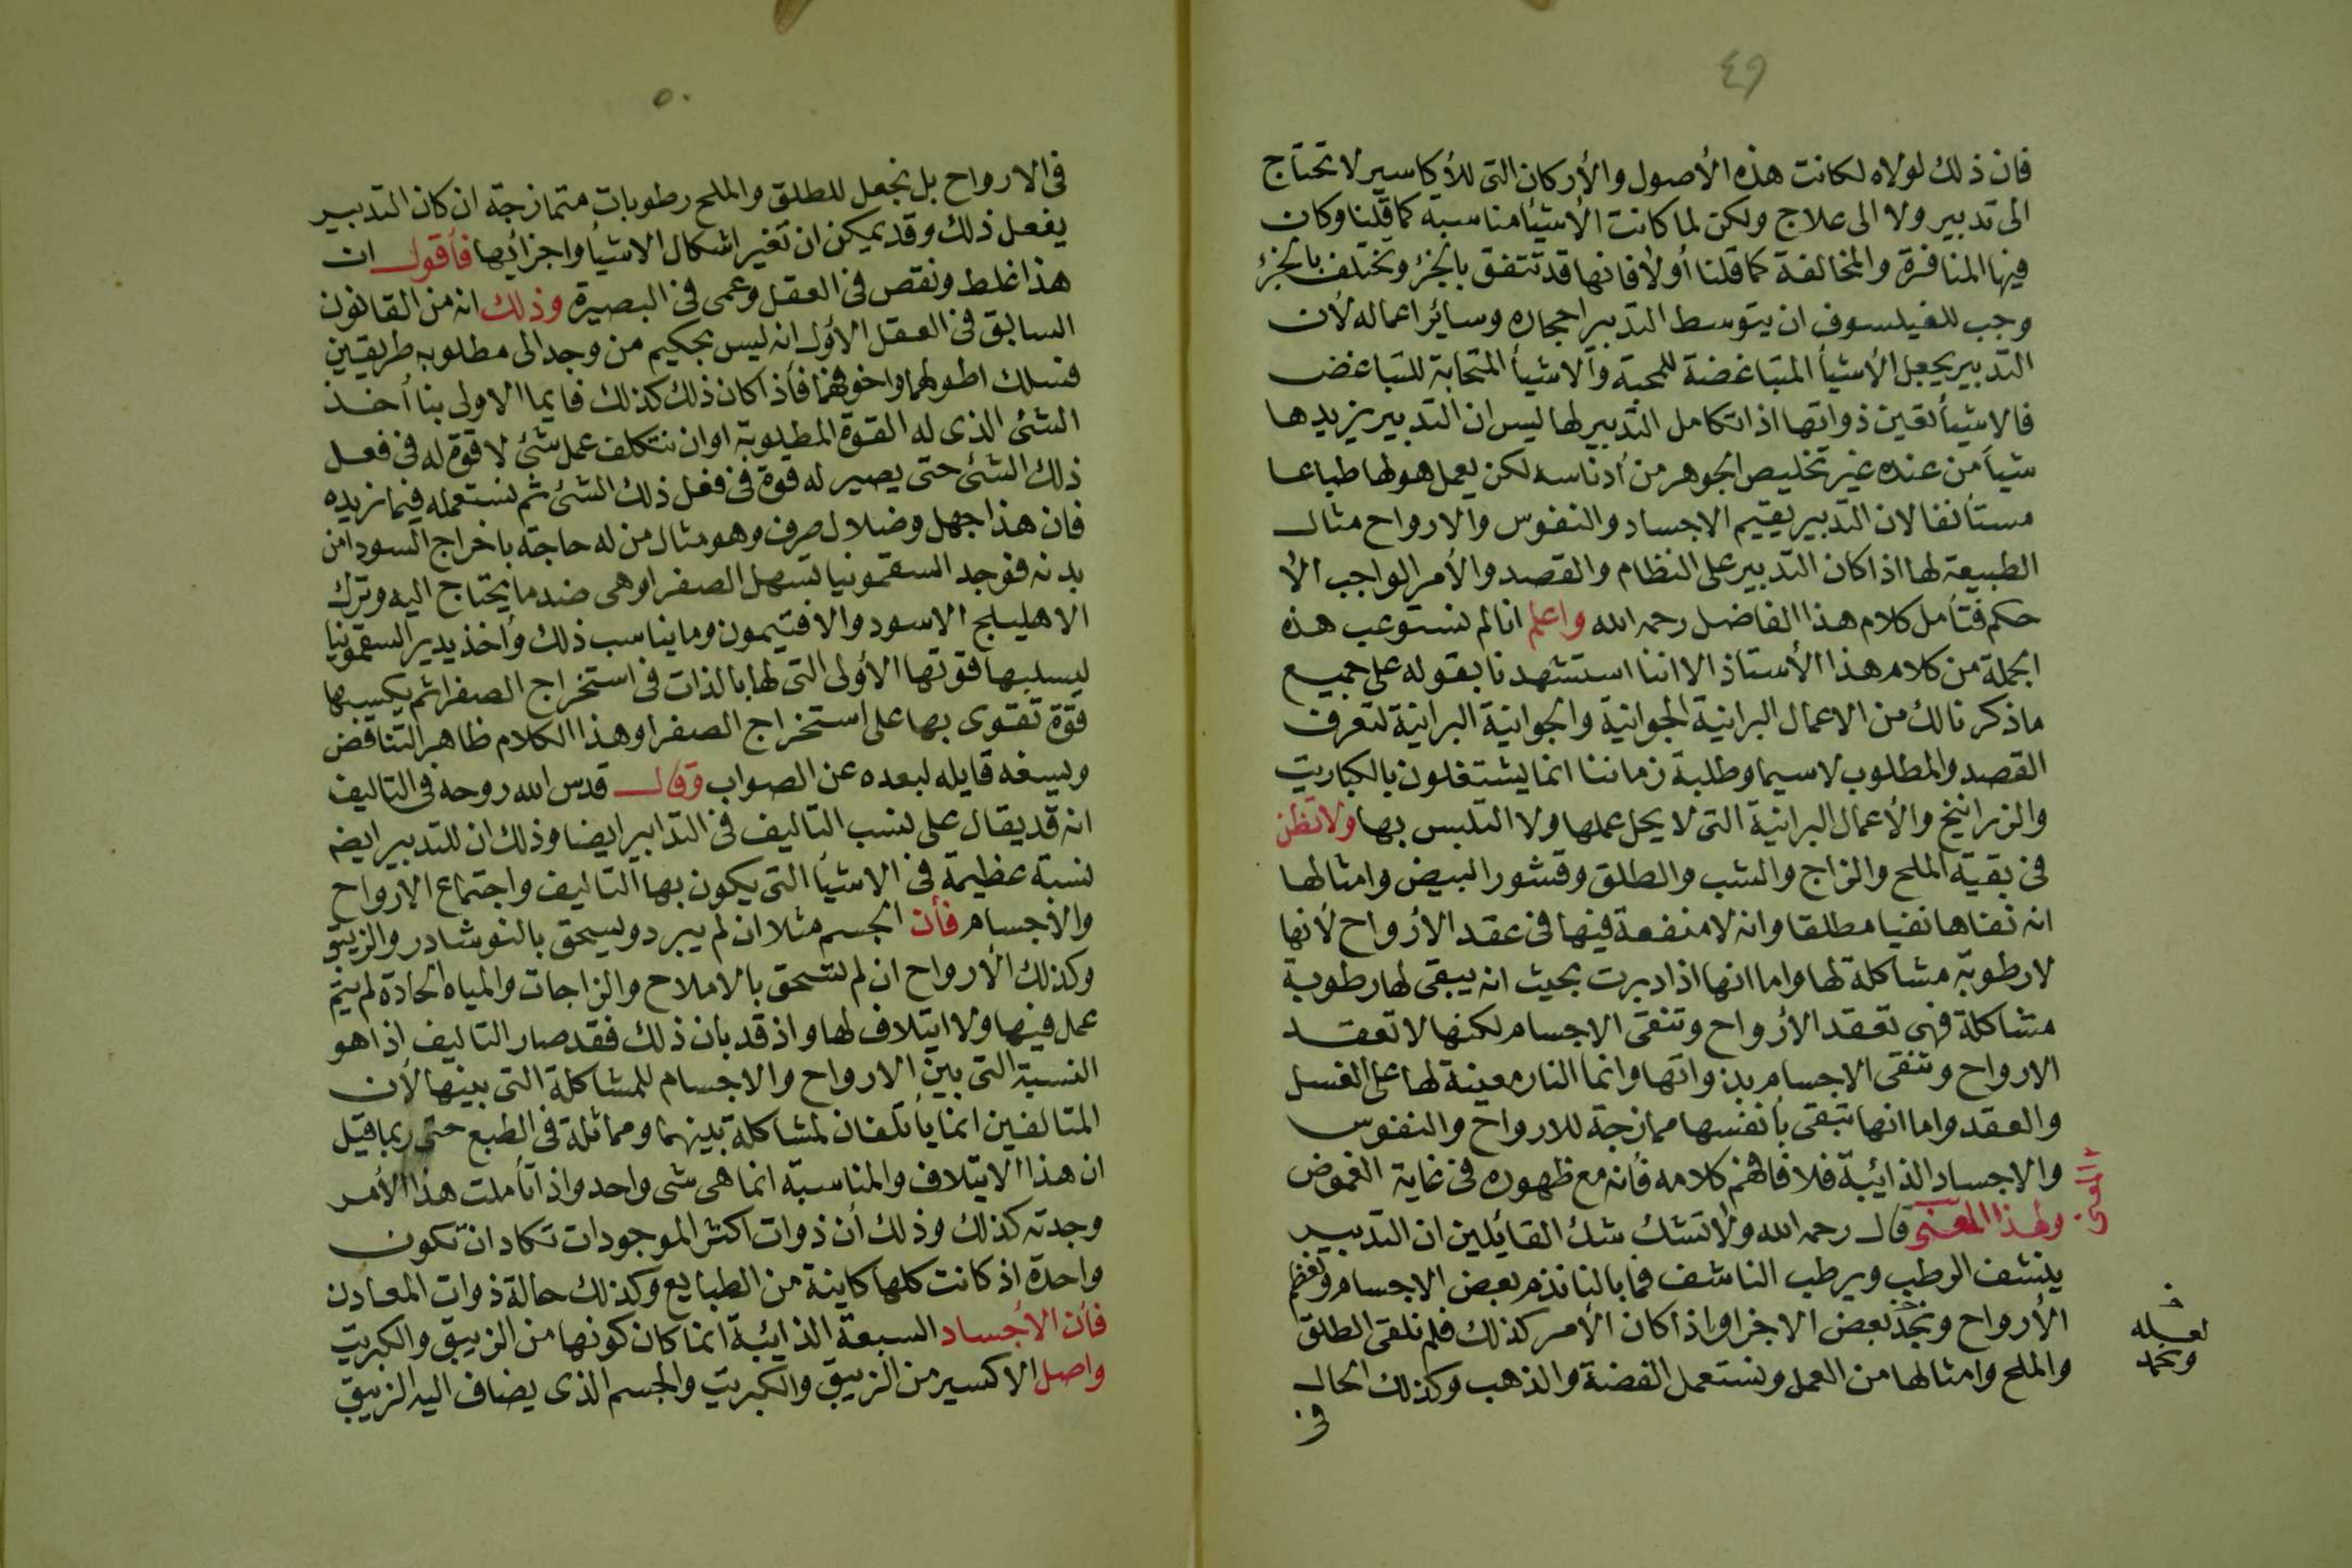 ٤٩
فان ذلك لولاه لكانت هذه الأصول والأركان التى للأكاسير لا تحتاج
الى تدبير ولا الى علاج ولكن لما كانت الأشيأ مناسبة كما قلنا وكان
فيها المنافرة والمخالفة كما قلنا أولا فانها قد تتفق بالجزء وتختلف بالجزء
وجب للفيلسوف ان يتوسط التدبير احجاره وسائر اعماله لأن
التدبير يجعل الأشيأ المتباغضة للمحبة والاشيأ المتحابة للتباغض
فالاشيأ تعين ذواتها اذا تكامل التدبير لها ليس ان التدبير يزيدها
شيأ من عنده غير تخليص الجوهر من أدناسه لكن يعمل هو لها طباعا
مستأنفا لان التدبير يقيم الاجساد والنفوس والارواح مثال
الطبيعة لها اذا كان التدبير على النظام والقصد والأمر الواجب الأ
حكم فتأمل كلام هذا الفاضل رحمه الله واعلم انا لم نستوعب هذه
الجملة من كلام هذا الأستاذ الا اننا استشهدنا بقوله على جميع
ما ذكرنا لك من الاعمال البرانية الجوانية والجوانية البرانية لتعرف
القصد والمطلوب لاسيما وطلبة زماننا انما يشتغلون بالكباريت
والزرانيخ والأعمال البرانية التى لا يحل عملها ولا التلبس بها ولا تظن
فى بقية الملح والزاج والشب والطلق وقشور البيض وامثالها
انه نفاها نفيا مطلقا وانه لا منفعة فيها فى عقد الأرواح لأنها
لا رطوبة مشاكلة لها واما انها اذا دبرت بحيث انه يبقى لها رطوبة
مشاكلة فهى تعقد الأرواح وتنقى الاجسام لكنها لا تعقد
الارواح وتنقى الاجسام بذواتها وانما النار معينة لها على الغسل
والعقد واما انها تبقى بأنفسها ممازجة للارواح والنفوس
والاجساد الذائبة فلا فافهم كلامه فأنه مع ظهوره فى غاية الغموض
ولهذا المعنى قال رحمه الله ولا تشك شك القائلين ان التدبير
ينشف الرطب ويرطب الناشف فما بالنا نذم بعض الاجسام ونعظم
الأرواح ونجد بعض الاخر او اذا كان الأمر كذلك فلم نلقى الطلق
والملح وامثالها من العمل ونستعمل الفضة والذهب وكذلك الحال
فى
لعله
ونحمد
٥٠
فى الارواح بل نجعل للطلق والملح رطوبات متمازجة ان كان التدبير
يفعل ذلك وقد يمكن ان تغير اشكال الاشيأ واجزائها فأقول ان
هذا غلط ونقص فى العقل وعمى فى البصيرة وذلك انه من القانون
السابق فى العقل الأول انه ليس بحكيم من وجد الى مطلوبه طريقين
فسلك اطولهما واخوفهما فأذا كان ذلك كذلك فايما الاولى بنا أخذ
الشئ الذى له القوة المطلوبة او ان نتكلف عمل شئ لا قوة له فى فعل
ذلك الشئ حتى يصير له قوة فى فعل ذلك الشئ ثم نستعمله فيما نريده
فان هذا جهل وضلال صرف وهو مثال من له حاجة باخراج السودا من
بدنه فوجد السقمونيا تسهل الصفرا وهى ضد ما يحتاج اليه وترك
الاهليلج الاسود والافتيمون وما يناسب ذلك وأخذ يدير السقمونيا
ليسلبها قوتها الأولى التى لها بالذات فى استخراج الصفرا ثم يكسبها
قوة تقوى بها على استخراج الصفرا وهذا الكلام ظاهر التناقض
وبسفه قايله لبعده عن الصواب وقال قدس الله روحه فى التاليف
انه قد يقال على نسب التأليف فى التدابير ايضا وذلك ان للتدبير ايضه
نسبة عظيمة فى الاشيأ التى يكون بها التاليف واجتماع الارواح
والاجسام فأن الجسم مثلا ان لم يبرد ويسحق بالنوشادر والزيبق
وكذلك الأرواح ان لم تسحق بالاملاح والزاجات والمياه الحادة لم يتم
عمل فيها ولا ايتلاف لها واذ قد بان ذلك فقد صار التاليف اذا هو
النسبة التى بين الارواح والاجسام للمشاكلة التى بينها لأن
المتالفين انما يأتلفان لمشاكلة بينهما ومماثلة فى الطبع حتى ربما قيل
ان هذا الايتلاف والمناسبة انما هى شى واحد واذا تأملت هذا الأمر
وجدته كذلك وذلك أن ذوات اكثر الموجودات تكاد ان تكون
واحدة اذ كانت كلها كاينة من الطبايع وكذلك حالة ذوات المعادن
فأن الأجساد السبعة الذائبة انما كان كونها من الزيبق والكبريت
واصل الاكسير من الزيبق والكبريت والجسم الذى يضاف اليه الزيبق